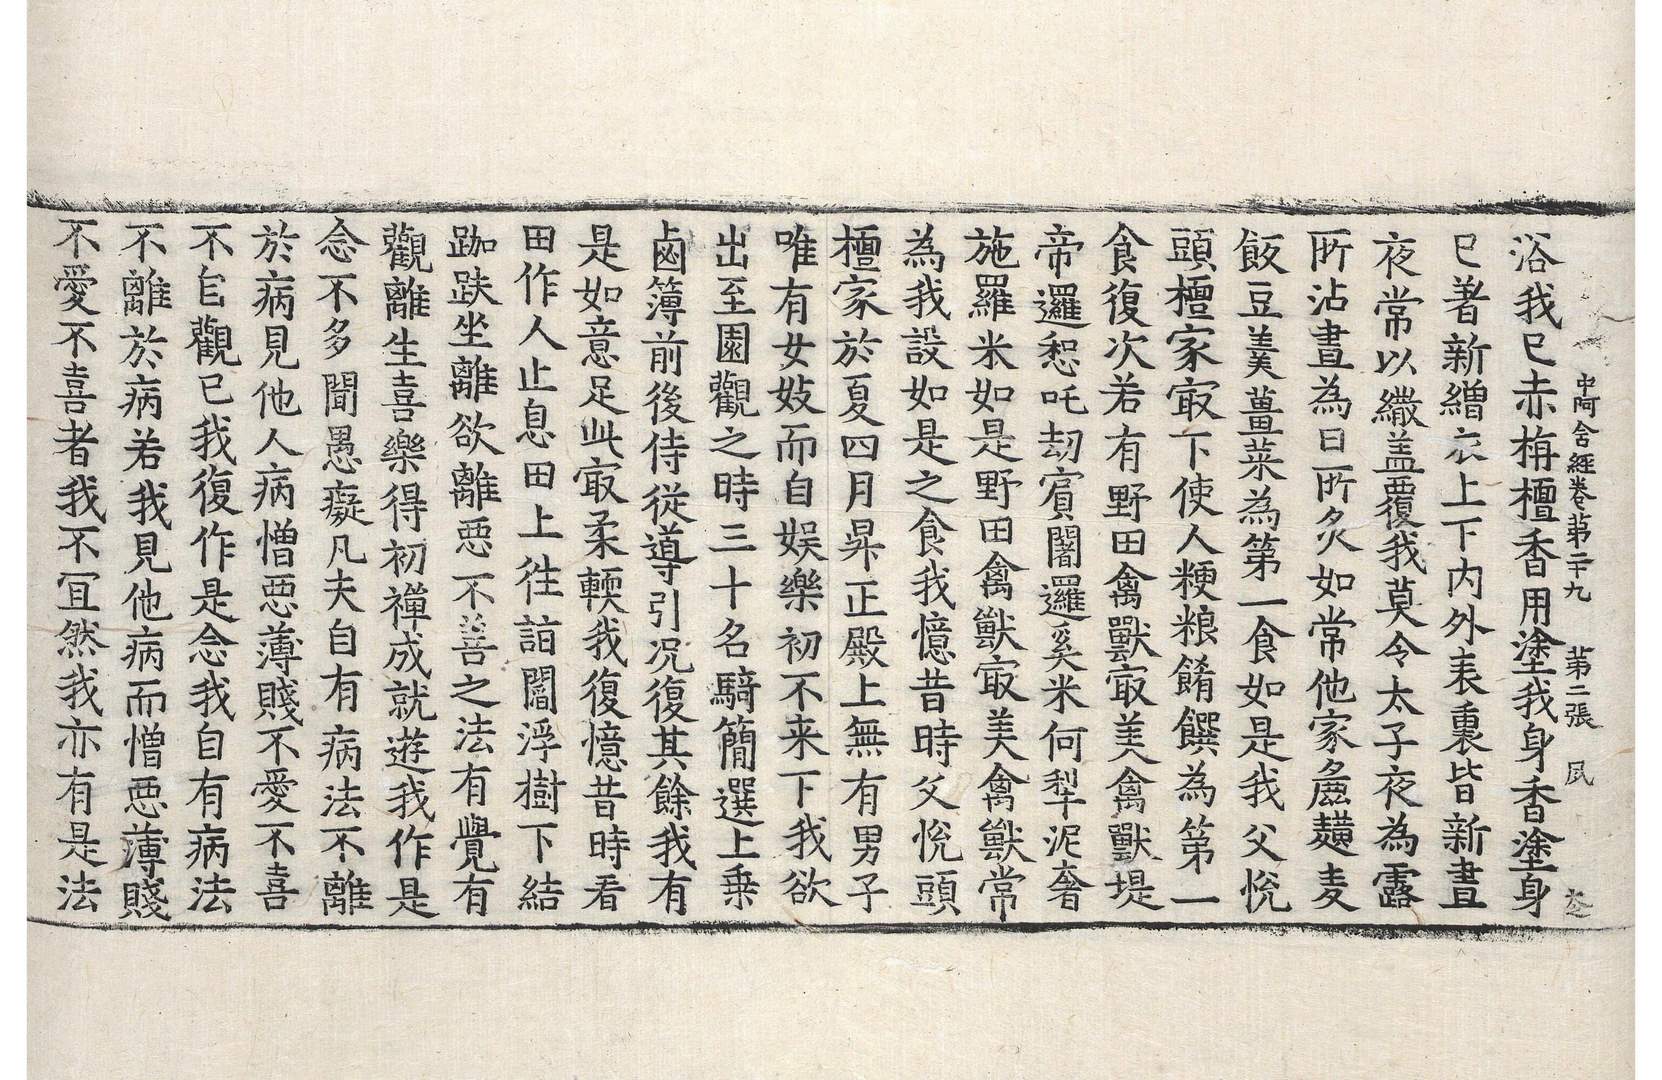 中阿含經卷第二十九　第二張　夙
浴我已赤栴檀香用塗我身香塗身
已著新繒衣上下內外表裏皆新晝
夜常以繖盖覆我莫令太子夜為露
所沾晝為日所炙如常他家麁䵃麦
飯豆羹薑菜為第一食如是我父悅
頭檀家㝡下使人粳粮餚饌為第一
食復次若有野田禽獸㝡美禽獸堤
帝邏惒吒劫賔闍邏奚米何犁泥奢
施羅米如是野田禽獸㝡美禽獸常
為我設如是之食我憶昔時父悅頭
檀家於夏四月昇正殿上無有男子
唯有女妓而自娛樂初不来下我欲
出至園觀之時三十名騎簡選上乗
鹵簿前後侍従導引况復其餘我有
是如意足此㝡柔輭我復憶昔時看
田作人止息田上徃詣閻浮樹下結
跏趺坐離欲離惡不善之法有覺有
觀離生喜樂得初禪成就遊我作是
念不多聞愚癡凡夫自有病法不離
於病見他人病憎惡薄賤不愛不喜
不自觀已我復作是念我自有病法
不離於病若我見他病而憎惡薄賤
不愛不喜者我不宜然我亦有是法